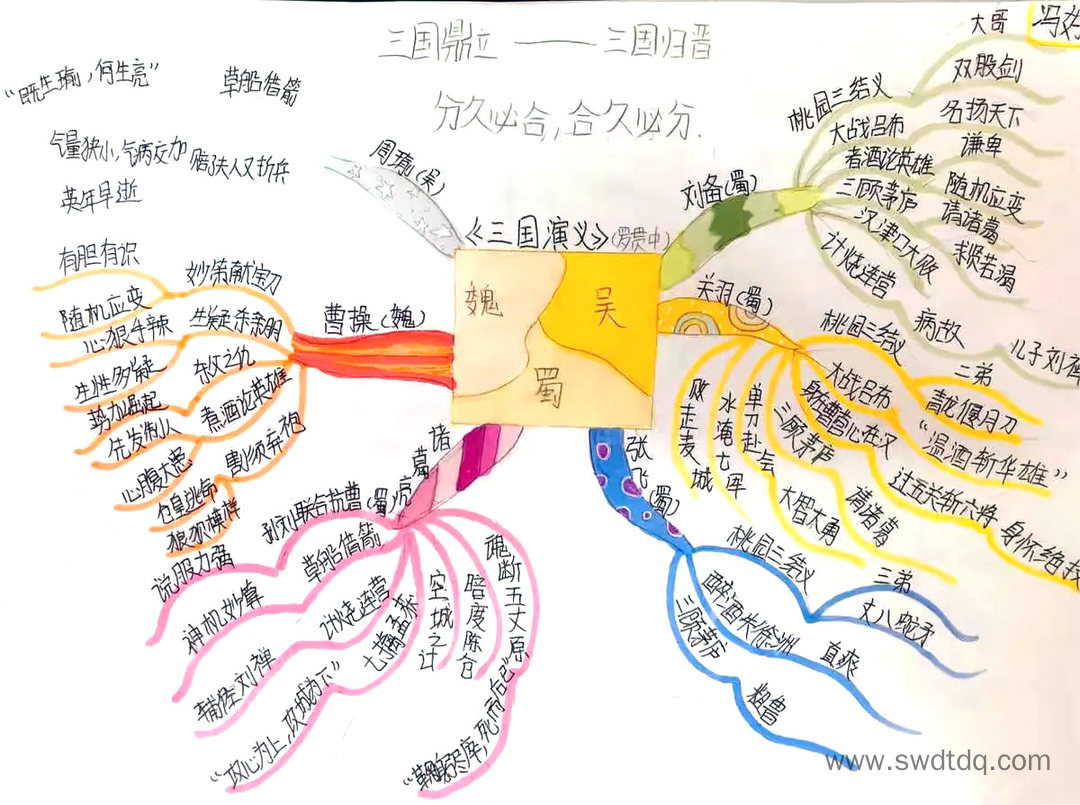 三国鼎立 —— 三国归晋
分久必合,合久必分.
《三国演义》(罗贯中)
魏
吴
蜀
周瑜(吴)
“既生瑜,何生亮”
草船借箭
气量狭小,气病交加
赔了夫人又折兵
英年早逝
曹操(魏)
妙策献宝刀
有胆有识
随机应变
生疑杀
心狠手辣
生性多疑
杀父之仇
势力崛起
先发制人
煮酒论英雄
心腹大患
割须弃袍
仓皇逃命
狼狈模样
诸葛亮(蜀)
孙刘联合抗曹
说服力强
草船借箭
神机妙算
计烧连营
辅佐刘禅
七擒孟获
“攻心为上,攻城为下”
空城之计
暗度陈仓
魂断五丈原
张飞(蜀)
桃园三结义
三弟
丈八蛇矛
醉酒失徐州
直爽
三顾茅庐
粗鲁
关羽(蜀)
桃园三结义
二弟
青龙偃月刀
大战吕布
“温酒斩华雄”
身在曹营心在汉
过五关斩六将
身怀绝技
三顾茅庐
请诸葛
大智大勇
单刀赴会
水淹七军
败走麦城
刘备(蜀)
桃园三结义
大哥
双股剑
大战吕布
名扬天下
煮酒论英雄
谦卑
随机应变
三顾茅庐
请诸葛
求贤若渴
汉津口大败
计烧连营
病故
儿子刘禅
冯
www.swdtdq.com